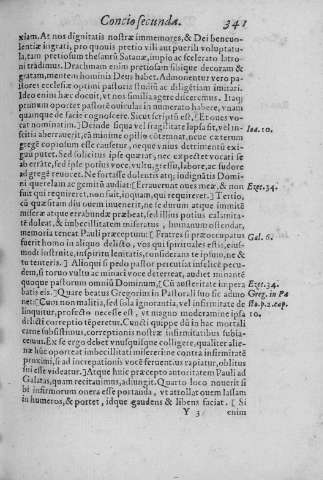 Concio secunda. 341
xiam. At nos dignitatis nostræ immemores, & Dei beneuo-
lentiæ ingrati, pro quouis pretio vili aut puerili voluptatu-
la, tam pretiosum thesaurũ Satanæ, impio ac scelerato latro-
ni tradimus. Drachmam enim pretiosam sibique decoram &
gratam, mentem hominis Deus habet. Admonentur vero pa-
stores ecclesiæ optimi pastoris studiũ ac diligẽtiam imitari.
Ideo enim hæc docuit, vt nos similia agere disceremus. Itaq;
primum oportet pastorẽ ouiculas in numerato habere, vnam-
quamque de facie cognoscere. Sicut scriptũ est, [ Et oues vo-
cat nominatim. ] Deinde siqua vel fragilitate lapsa sit, vel in- Ioa. 10.
scitia aberrauerit, cũ minime opilio cõtemnat, neue cæterum
gregẽ copiosum esse causetur, neque vnius detrimentũ exi-
gui putet. Sed solicitus ipse quærat, nec expectet vocari se
ab errãte, sed ipse potius voce, vultu, gressu, labore, ac sudore
ad gregẽ reuocet. Ne fortasse dolentis atq; indignãtis Domi-
ni querelam ac gemitũ audiat [ Errauerunt oues meæ, & non Ezec. 34.
fuit qui requireret, non fuit, inquam, qui requireret. ] Tertio,
cũ quæsitam diu ouem inuenerit, ne se durum atque immitẽ
miseræ atque errabundæ præbeat, sed illius potius calamita-
tẽ doleat, & imbecillitatem miseratus, humanum ostendat,
memoria teneat Pauli præceptum: [ Fratres si præoccupatus
fuerit homo in aliquo delicto, vos qui spirituales estis, eius- Gal. 6.
modi instruite, inspiritu lenitatis, considerans te ipsum, ne &
tu tenteris. ] Alioqui si pedo pastor percutiat infelicẽ pecu-
dem, si toruo vultu ac minaci voce deterreat, audiet minantẽ
quoque pastorum omniũ Dominum, [ Cũ austeritate impera- Ezec. 34.
batis eis. ] Quare beatus Gregorius in Pastorali suo sic admo- Greg. in Pa
net: [ Cum non malitia, sed sola ignorantia, vel infirmitate de- sto. p. 2. cap.
linquitur, profecto necesse est, vt magno moderamine ipsa 10.
delicti correptio tẽperetur. Cuncti quippe dũ in hac mortali
carne subsistimus, correptionis nostræ infirmitatibus subia-
cemus. Ex se ergo debet vnusquisque colligere, qualiter alie-
næ hũc oporteat imbecillitati misereri ne contra infirmitatẽ
proximi, si ad increpationis vocẽ feruentius rapiatur, oblitus
sui esse videatur. ] Atque huic præcepto autoritatem Pauli ad
Galatas, quam recitauimus, adiungit. Quarto loco nouerit si-
bi infirmorum onera esse portanda, vt attollat ouem lassam
in humeros, & portet, idque gaudens & libens faciat. [ Si
Y 3 enim